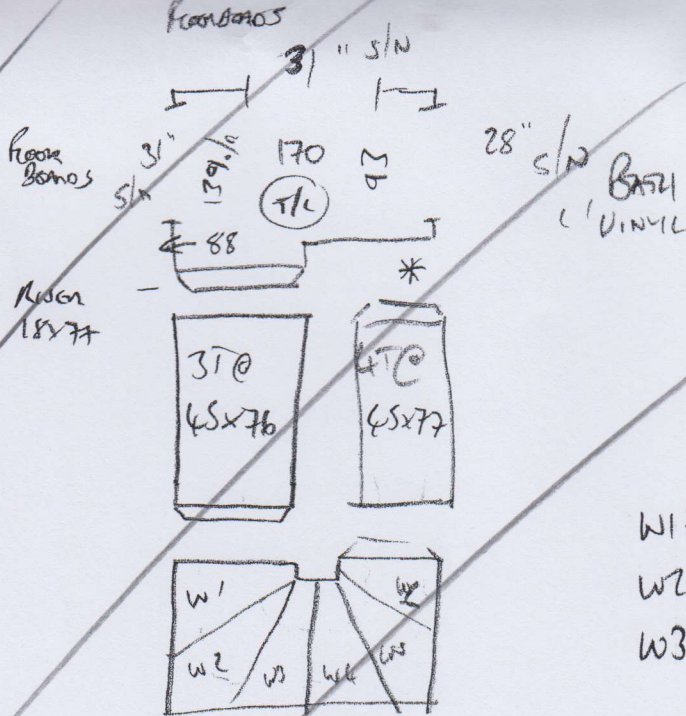 FLOORBOARDS
31" S/N
FLOOR BOARDS
31" S/N
170
93
T/L
28" S/N
BATH
L' VINYL
88
*
RISER
18x77
3T@
45x76
4T@
45x77
W1
W2
W3
W4
W5
W1
W2
W3